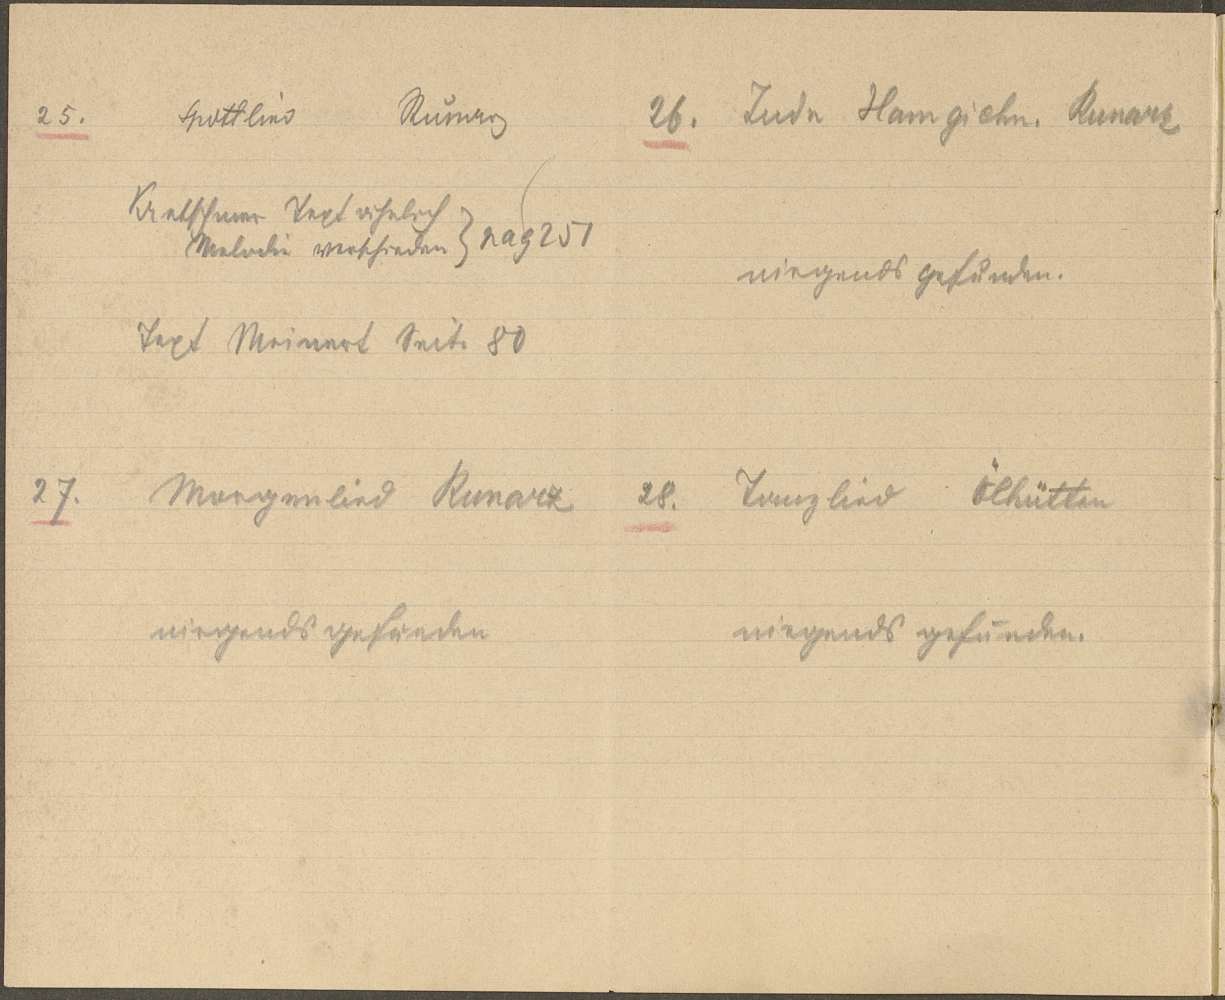 25. Spottlied Runarz
Kretschmer Text ähnlich
Melodie verschieden } pag 251
Text Meinert Seite 80
26. Jude Runarz
nirgends gefunden.
27. Morgenlied Runarz
nirgends gefunden
28. Tanzlied Ölhütten
nirgends gefunden.